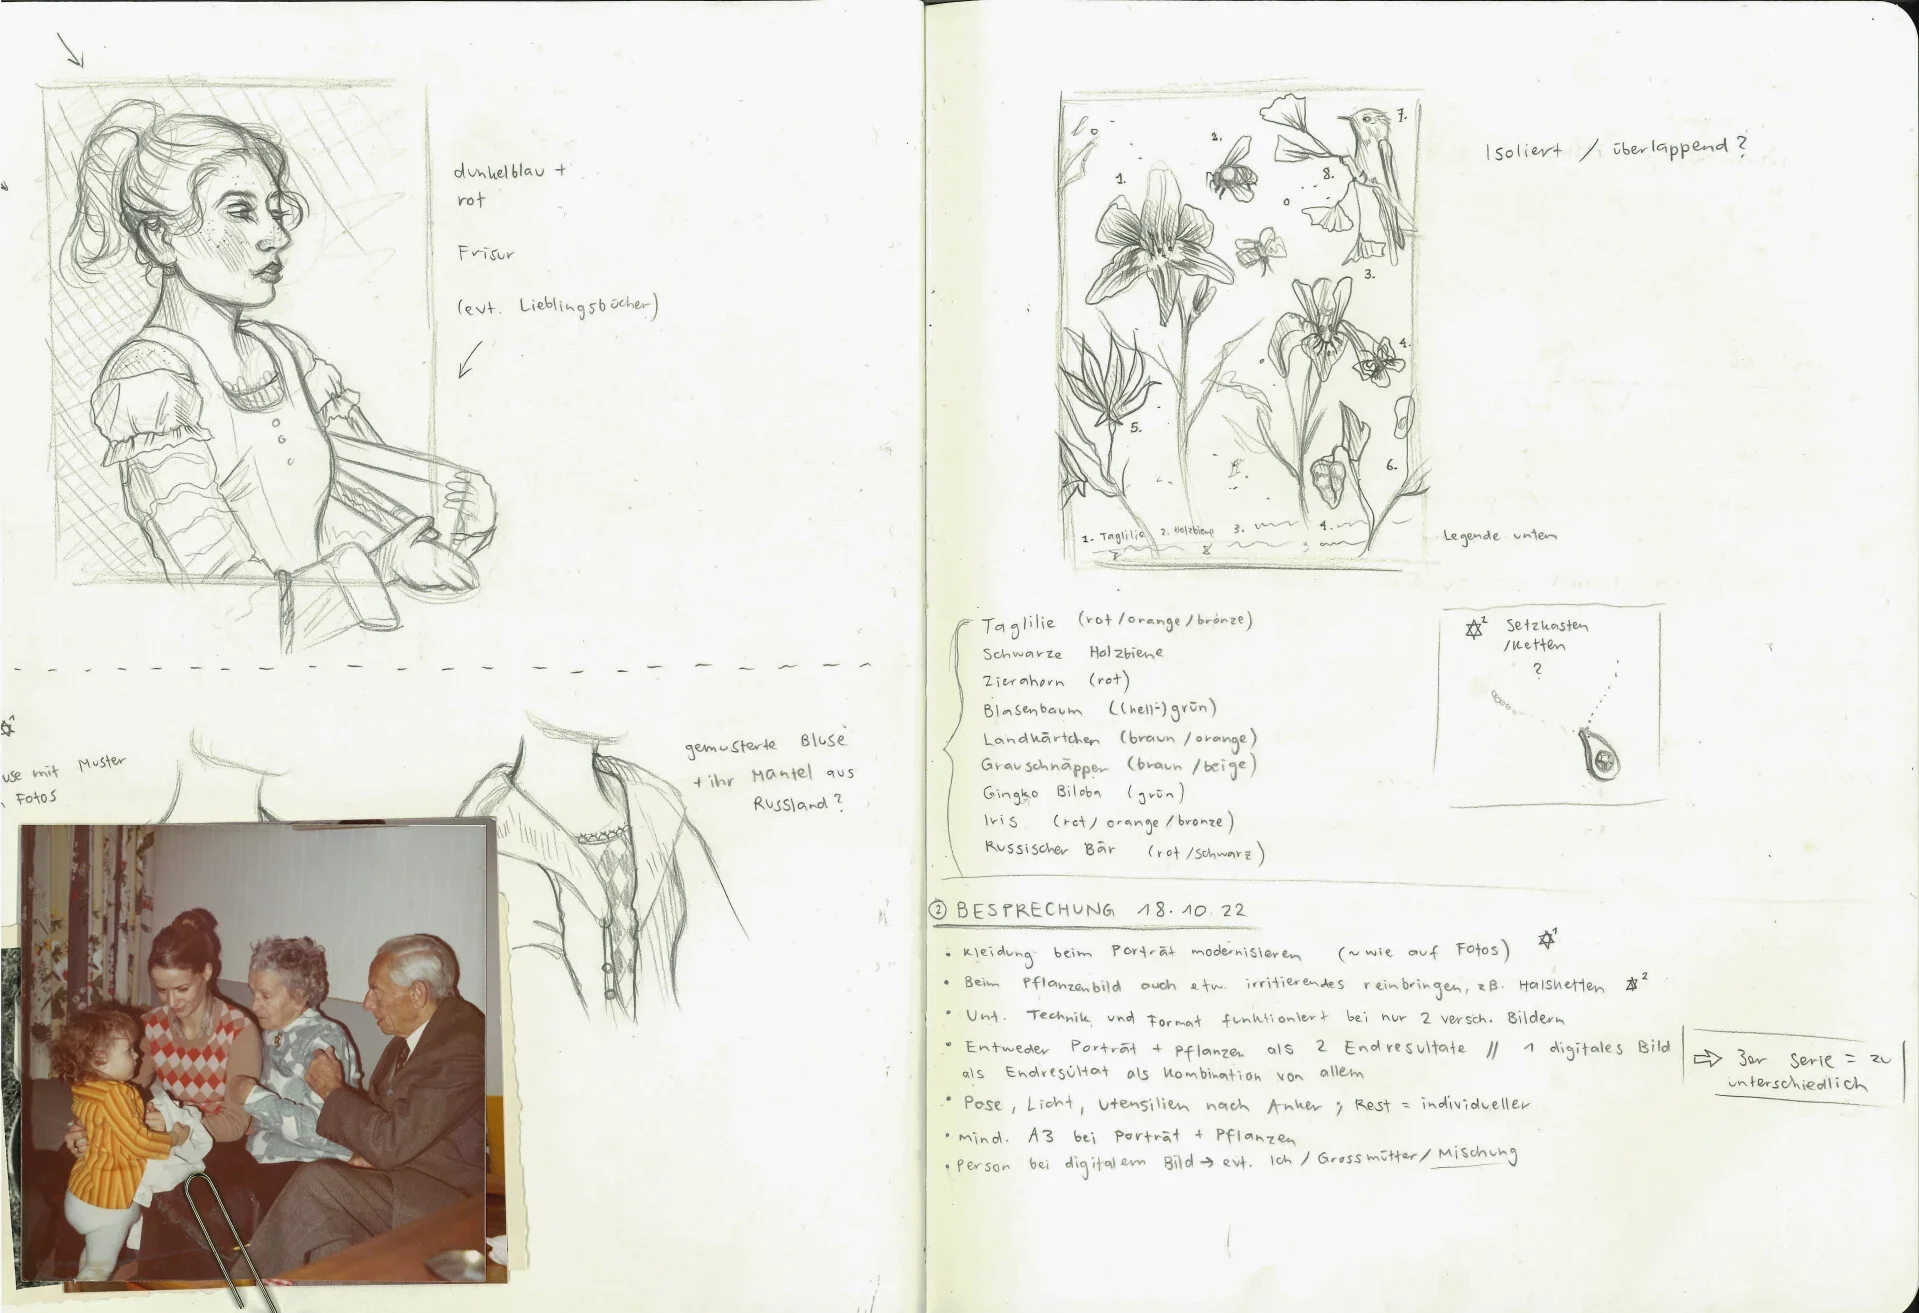 dunkelblau +
rot
Frisur
(evt. Lieblingsbücher)
✡1
use mit Muster
Fotos
gemusterte Bluse
+ ihr Mantel aus
Russland?
1.
2.
7.
8.
3.
4.
5.
6.
1. Taglilie 2. Holzbiene 3. 4.
8
Isoliert / überlappend?
Legende unten
Taglilie (rot/orange/bronze)
Schwarze Holzbiene
Zierahorn (rot)
Blasenbaum ((hell-)grün)
Landkärtchen (braun/orange)
Grauschnäpper (braun/beige)
Gingko Biloba (grün)
Iris (rot/orange/bronze)
Russischer Bär (rot/schwarz)
✡2 Setzkasten
/Ketten
?
② BESPRECHUNG 18.10.22
• Kleidung beim Porträt modernisieren (~wie auf Fotos) ✡1
• Beim Pflanzenbild auch etw. irritierendes reinbringen, zB. Halsketten ✡2
• Unt. Technik und Format funktioniert bei nur 2 versch. Bildern
• Entweder Porträt + Pflanzen als 2 Endresultate // 1 digitales Bild
als Endresultat als Kombination von allem
⇒ 3er Serie = zu
unterschiedlich
• Pose, Licht, Utensilien nach Anker ; Rest = individueller
• mind. A3 bei Porträt + Pflanzen
• Person bei digitalem Bild → evt. Ich / Grossmütter / Mischung